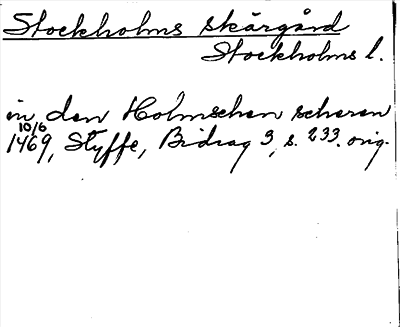 Stockholms skärgård
Stockholms l.
in den Holmschen scheren
10/6
1469, Styffe, Bidrag 3, s. 233. orig.